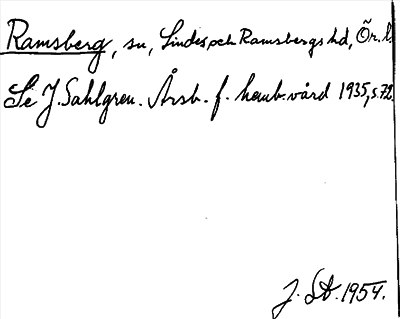 Ramsberg, sn, Lindes och Ramsbergs hd, Ör. l.
Se J. Sahlgren. Årsb. f. hemb.vård 1935, s. 72.
J. St. 1954.